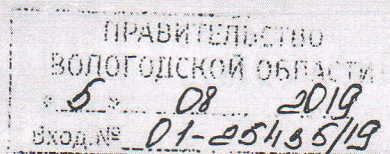 ПРАВИТЕЛЬСТВО
ВОЛОГОДСКОЙ ОБЛАСТИ
« 5 » 08 2019
Вход.№ 01-25435/19